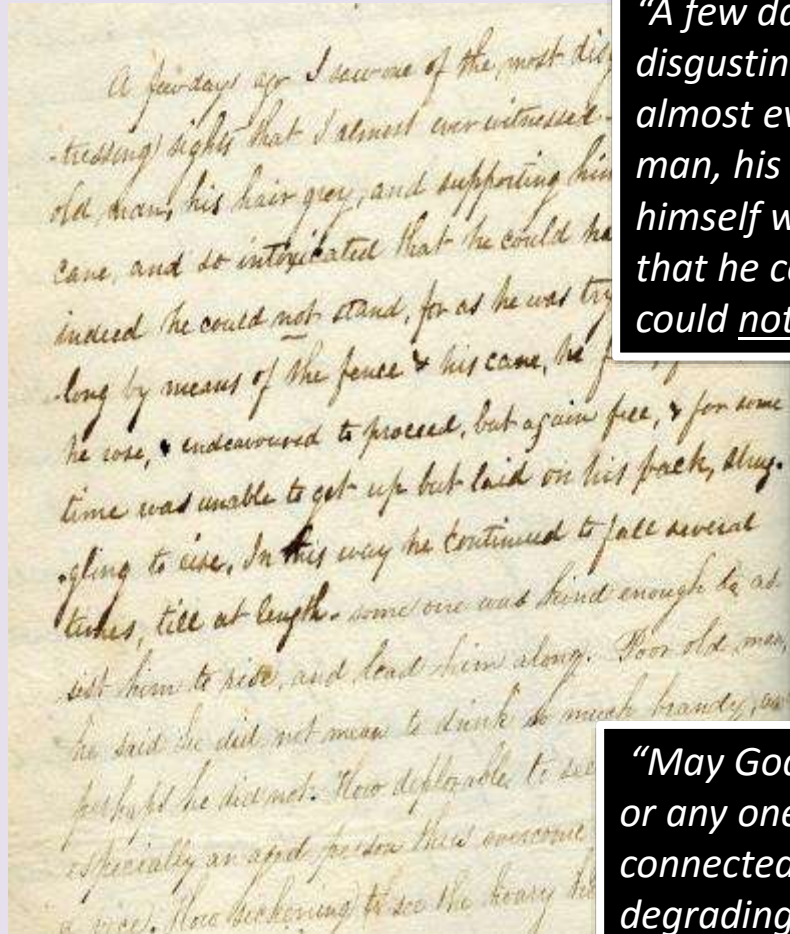 A few days ago I saw one of the most dis
-tressing) sights that I almost ever witnessed -
old man, his hair grey, and supporting him
cane, and so intoxicated that he could ha
indeed he could not stand, for as he was try
-long by means of the fence & his cane, he f
he rose, & endeavoured to proceed, but again fell, & for some
time was unable to get up but laid on his back, strug-
-gling to rise. In this way he continued to fall several
times, till at length - some one was kind enough to as
sist him to rise, and lead him along. Poor old man,
he said he did not mean to drink so much brandy, an
perhaps he did not. How deplorable to see
especially an aged person thus overcome
a vice). How sickening to see the hoary he
"A few da
disgustin
almost ev
man, his
himself w
that he co
could not
"May God
or any one
connected
degrading